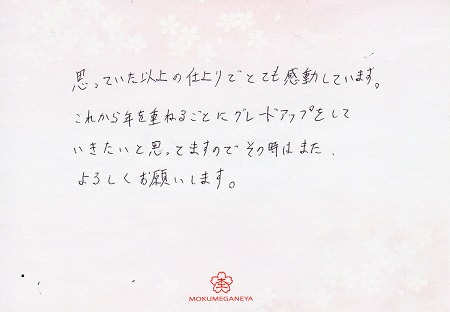 思っていた以上の仕上りでとても感動しています。
これから年を重ねるごとにグレードアップをして
いきたいと思ってますのでその時はまた、
よろしくお願いします。
MOKUMEGANEYA